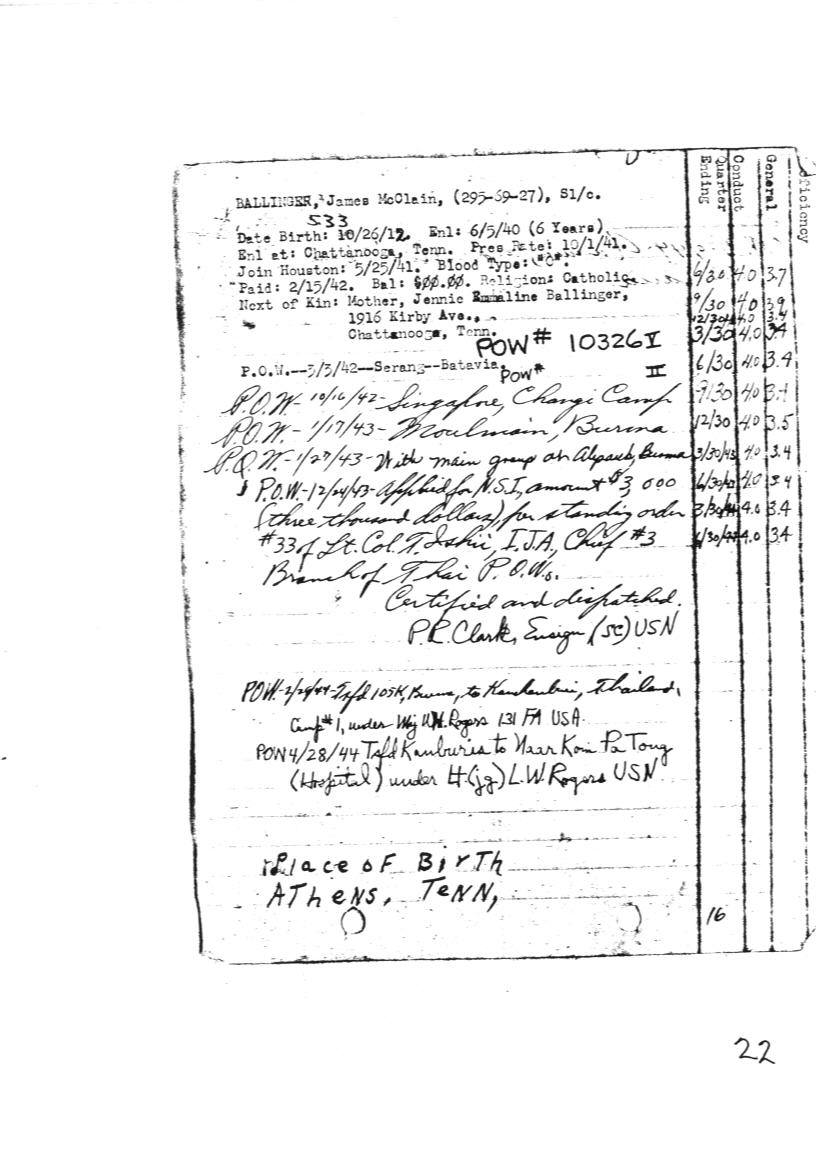 BALLINGER, James McClain, (295-69-27), S1/c.
533
Date Birth: 10/26/12. Enl: 6/5/40 (6 Years)
Enl at: Chattanooga, Tenn. Pres Rate: 10/1/41.
Join Houston: 5/25/41. Blood Type: "O".
Paid: 2/15/42. Bal: $00.00. Religion: Catholic.
Next of Kin: Mother, Jennie Emmaline Ballinger,
1916 Kirby Ave.,
Chattanooga, Tenn.
POW# 10326 V
P.O.W.--3/3/42--Serang--Batavia.
POW# II
P.O.W- 10/16/42- Singapore, Changi Camp
P.O.W.- 1/17/43- Moulmain, Burma
P.O.W.-1/27/43- With main group at Burma
P.O.W.-12/24/43- Applied for N.S.I, amount $3,000
(three thousand dollars), per standing order
#33 of Lt. Col. T. Ishii, I.J.A., Chief #3
Branch of Thai P.O.Ws.
Certified and dispatched.
P.R. Clark, Ensign (SC) USN
POW-2/29/44-Tsfd 105K, Burma, to Thailand,
Camp #1, under Maj W.H. Rogers 131 FA USA.
POW 4/28/44 Tsfd Kanburia to Naar Kom Pa Tong
(Hospital) under Lt (jg) L.W. Rogers USN
Place of Birth
AThens, Tenn,
Quarter Ending Conduct General
6/30 4.0 3.7
9/30 4.0 3.9
12/30 4.0 3.4
3/30 4.0 3.4
6/30 4.0 3.4
9/30 4.0 3.4
12/30 4.0 3.5
3/30/43 4.0 3.4
6/30/43 4.0 3.4
3/30/44 4.0 3.4
6/30/44 4.0 3.4
16
22